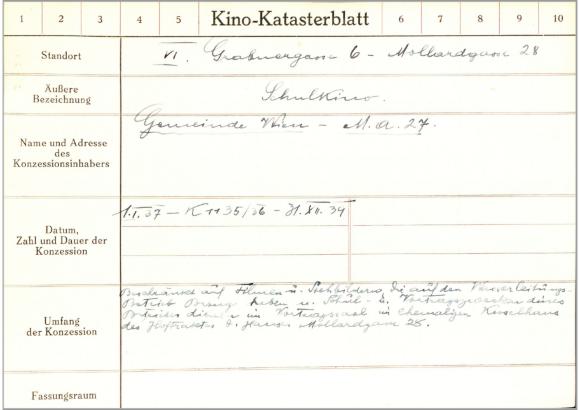 1 2 3 4 5 Kino-Katasterblatt 6 7 8 9 10
Standort VI. Grabnergasse 6 - Mollardgasse 28
Äußere
Bezeichnung Schulkino.
Gemeinde Wien - M.A. 27.
Name und Adresse
des
Konzessionsinhabers
1.I.37 - K 1135/36 - 31.XII.39
Datum,
Zahl und Dauer der
Konzession
Beschränkt auf Filmen u. Stehbildern, die auf den
Betrieb Bezug haben u. Schul- u. Vortragszwecken dieses
Betriebes dienen im Vortragssaal im ehemaligen Kesselhaus
des Hoftraktes d. Hauses Mollardgasse 28.
Umfang
der Konzession
Fassungsraum